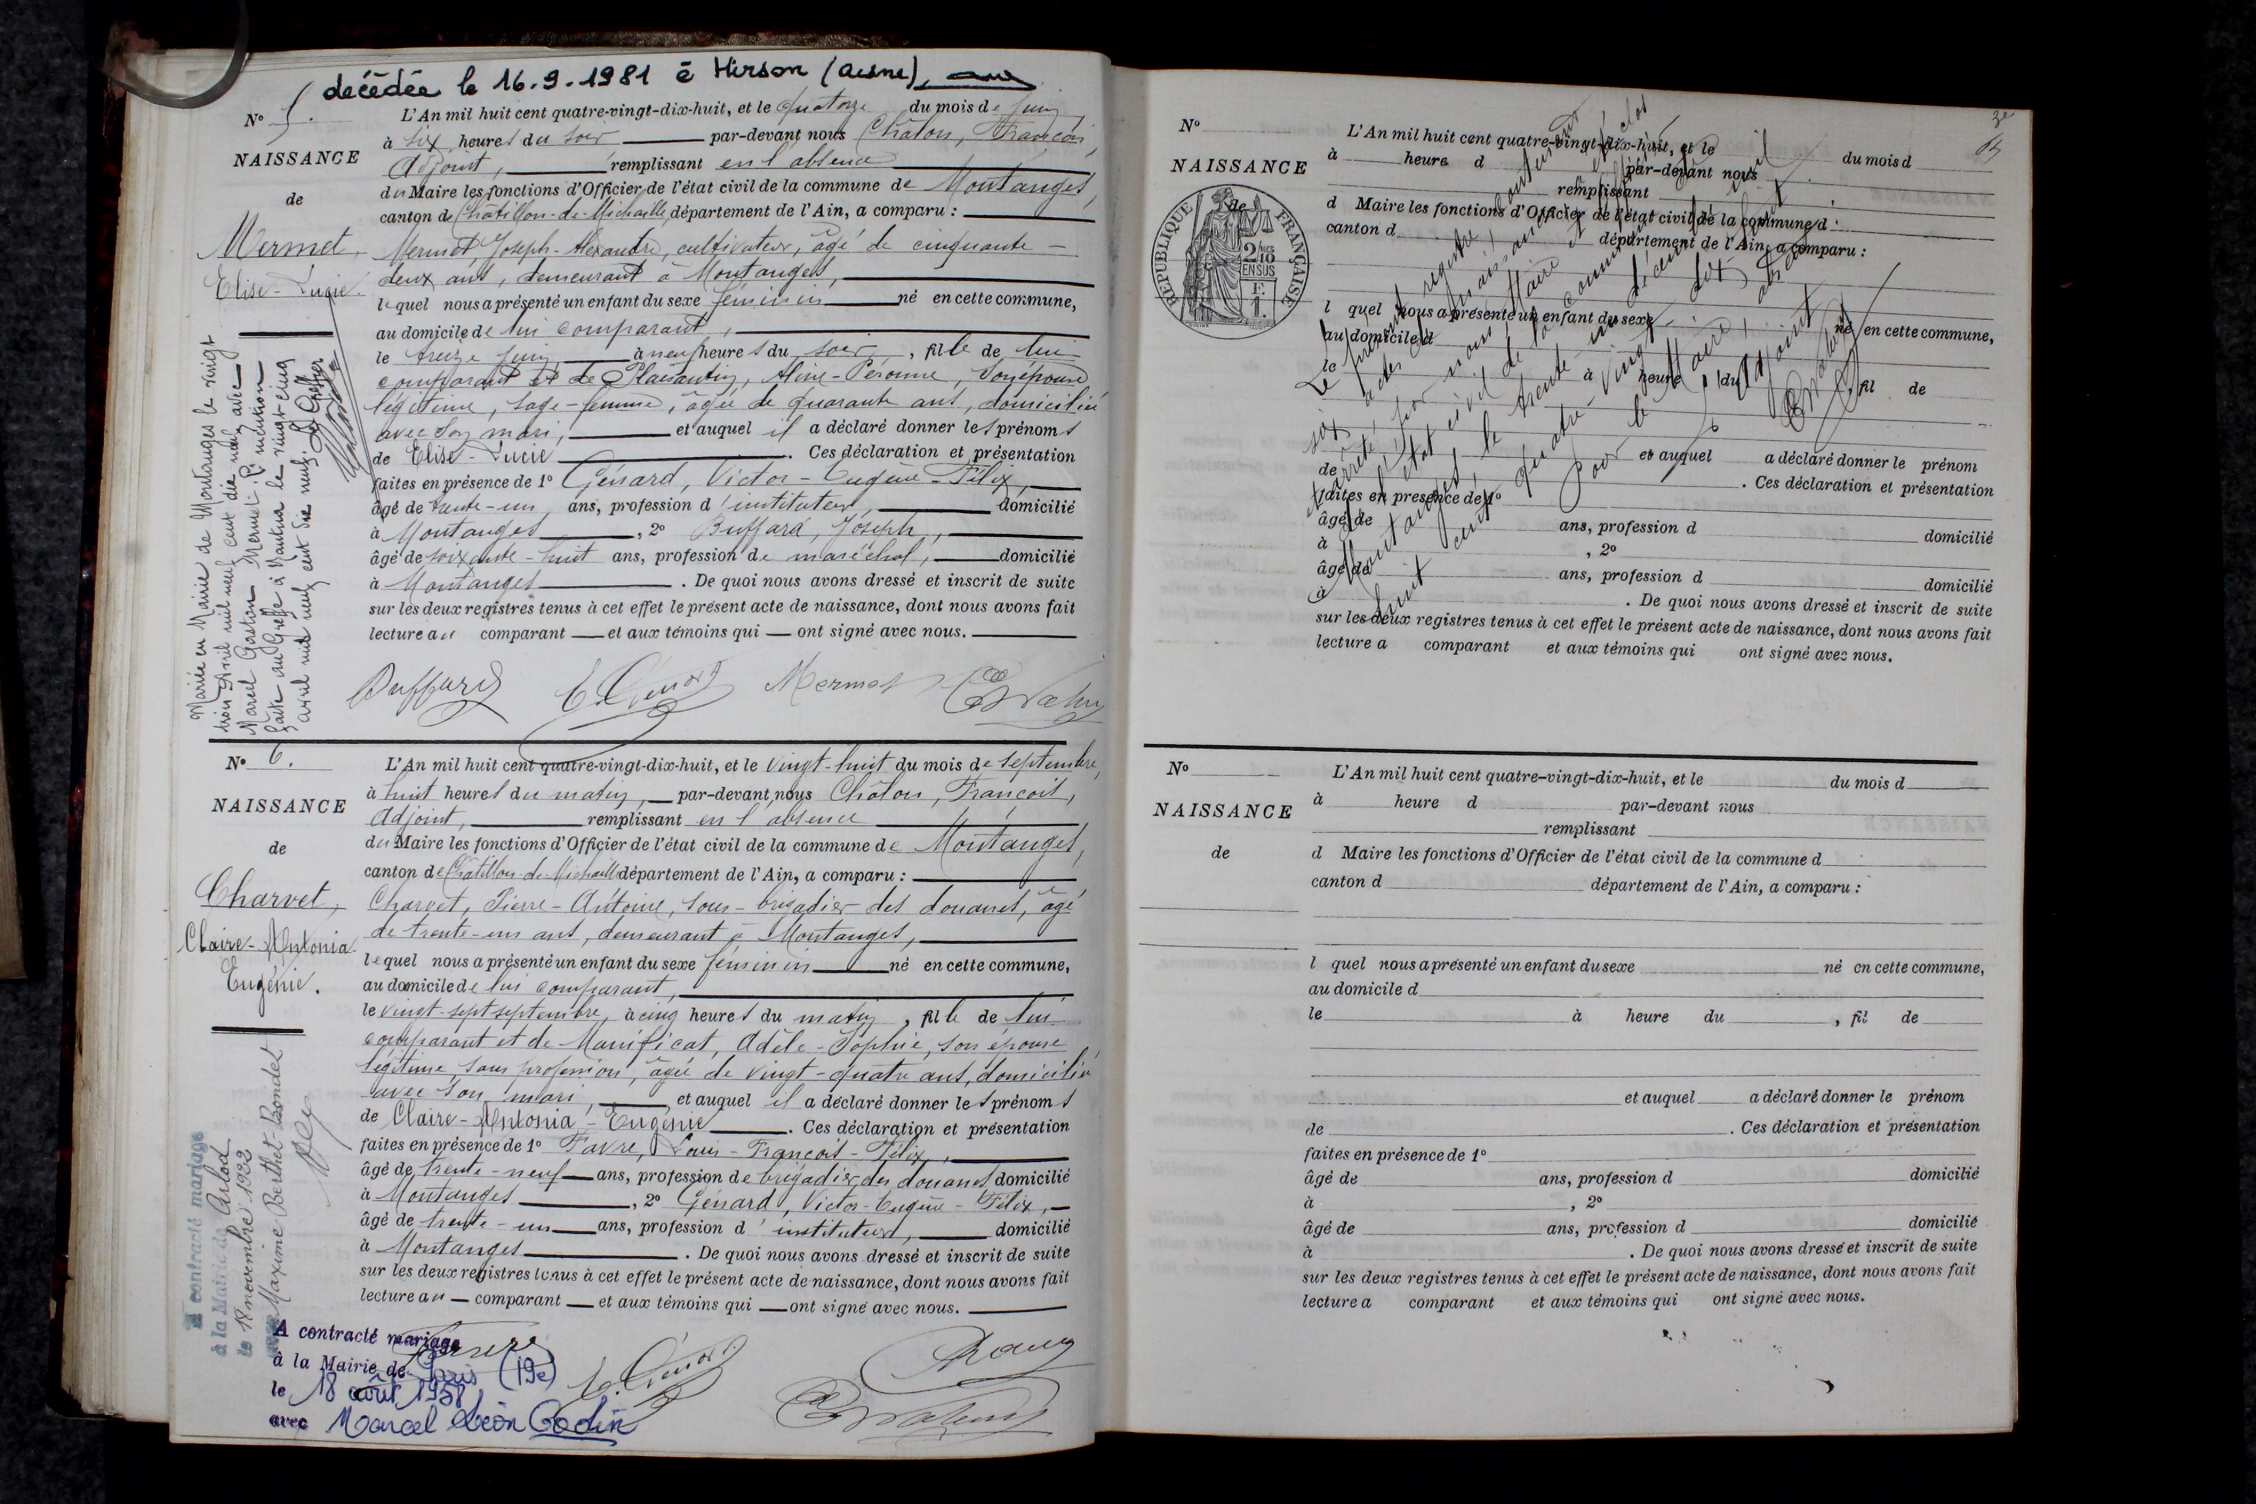 décédée le 16.9.1981 à Hirson (Aisne)
N° 5.
NAISSANCE
de
Mermet,
Elise-Lucie.
Mariée en Mairie de Montanges le vingt
trois Avril mil neuf cent dix neuf avec
Marcel Gaston Mermet. P. mention
faite au Greffe à Nantua le vingt-cinq
avril mil neuf cent dix neuf. Le Greffier
L'An mil huit cent quatre-vingt-dix-huit, et le quatorze du mois de juin
à six heures du soir par-devant nous Châton, François,
Adjoint, remplissant en l'absence
du Maire les fonctions d'Officier de l'état civil de la commune de Montanges,
canton de Châtillon-de-Michaille, département de l'Ain, a comparu :
Mermet, Joseph-Alexandre, cultivateur, âgé de cinquante-
deux ans, demeurant à Montanges,
lequel nous a présenté un enfant du sexe féminin né en cette commune,
au domicile de lui comparant,
le treize juin à neuf heures du soir, fille de lui
comparant et de Plaisantin, Aline-Péronne, son épouse
légitime, sage-femme, âgée de quarante ans, domiciliée
avec son mari, et auquel il a déclaré donner les prénoms
de Elise-Lucie. Ces déclaration et présentation
faites en présence de 1° Génard, Victor-Eugène-Félix,
âgé de trente-un ans, profession d'instituteur, domicilié
à Montanges, 2° Buffard, Joseph,
âgé de soixante-huit ans, profession de maréchal, domicilié
à Montanges. De quoi nous avons dressé et inscrit de suite
sur les deux registres tenus à cet effet le présent acte de naissance, dont nous avons fait
lecture au comparant et aux témoins qui ont signé avec nous.
Buffard E. Génard Mermet
N° 6.
NAISSANCE
de
Charvet,
Claire-Antonia
Eugénie.
A contracté mariage
à la Mairie de Arlod
le 18 novembre 1922
avec Maxime Berthet Bondet
L'An mil huit cent quatre-vingt-dix-huit, et le vingt-huit du mois de septembre,
à huit heures du matin, par-devant nous Châton, François,
Adjoint, remplissant en l'absence
du Maire les fonctions d'Officier de l'état civil de la commune de Montanges,
canton de Châtillon-de-Michaille département de l'Ain, a comparu :
Charvet, Pierre-Antoine, sous-brigadier des douanes, âgé
de trente-un ans, demeurant à Montanges,
lequel nous a présenté un enfant du sexe féminin né en cette commune,
au domicile de lui comparant,
le vingt-sept septembre, à cinq heures du matin, fille de lui
comparant et de Manificat, Adèle-Sophie, son épouse
légitime, sans profession, âgée de vingt-quatre ans, domiciliée
avec son mari, et auquel il a déclaré donner les prénoms
de Claire-Antonia-Eugénie. Ces déclaration et présentation
faites en présence de 1° Favre, Louis-François-Félix,
âgé de trente-neuf ans, profession de brigadier des douanes domicilié
à Montanges, 2° Génard, Victor-Eugène-Félix,
âgé de trente-un ans, profession d'instituteur, domicilié
à Montanges. De quoi nous avons dressé et inscrit de suite
sur les deux registres tenus à cet effet le présent acte de naissance, dont nous avons fait
lecture au comparant et aux témoins qui ont signé avec nous.
A contracté mariage
à la Mairie de Paris (19e)
le 18 août 1958
avec Marcel Léon Godin
E. Génard
N°
NAISSANCE
de
RÉPUBLIQUE FRANÇAISE
2/10
EN SUS
F.
1.
L'An mil huit cent quatre-vingt-dix-huit, et le du mois d
à heure d par-devant nous
remplissant
d Maire les fonctions d'Officier de l'état civil de la commune d
canton d département de l'Ain, a comparu :
l quel nous a présenté un enfant du sexe né en cette commune,
au domicile d
le à heure du, fil de
et auquel a déclaré donner le prénom
de. Ces déclaration et présentation
faites en présence de 1°
âgé de ans, profession d domicilié
à, 2°
âgé de ans, profession d domicilié
à. De quoi nous avons dressé et inscrit de suite
sur les deux registres tenus à cet effet le présent acte de naissance, dont nous avons fait
lecture a comparant et aux témoins qui ont signé avec nous.
Le présent registre, contenant
six actes de naissance, clos
et arrêté par nous, Maire et
de l'état civil de la commune
Montanges, le trente-un décembre
huit cent quatre-vingt-dix
Pour le Maire, absent
l'Adjoint
N°
NAISSANCE
de
L'An mil huit cent quatre-vingt-dix-huit, et le du mois d
à heure d par-devant nous
remplissant
d Maire les fonctions d'Officier de l'état civil de la commune d
canton d département de l'Ain, a comparu :
l quel nous a présenté un enfant du sexe né en cette commune,
au domicile d
le à heure du, fil de
et auquel a déclaré donner le prénom
de. Ces déclaration et présentation
faites en présence de 1°
âgé de ans, profession d domicilié
à, 2°
âgé de ans, profession d domicilié
à. De quoi nous avons dressé et inscrit de suite
sur les deux registres tenus à cet effet le présent acte de naissance, dont nous avons fait
lecture a comparant et aux témoins qui ont signé avec nous.